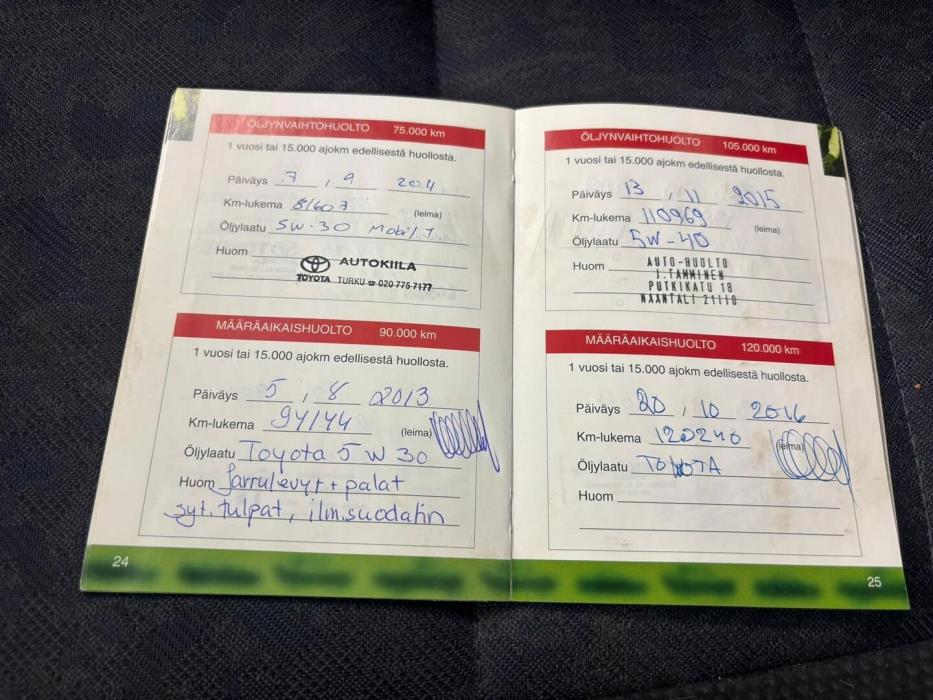 ÖLJYNVAIHTOHUOLTO 75.000 km
1 vuosi tai 15.000 ajokm edellisestä huollosta.
Päiväys 7 , 9 2011
Km-lukema 81607 (leima)
Öljylaatu 5W-30 Mobil 1
Huom
AUTOKIILA
TOYOTA TURKU ☎ 020 775 7177
MÄÄRÄAIKAISHUOLTO 90.000 km
1 vuosi tai 15.000 ajokm edellisestä huollosta.
Päiväys 5 , 8 2013
Km-lukema 94144 (leima)
Öljylaatu Toyota 5W30
Huom Jarrulevyt + palat
syt. tulpat, ilm.suodatin
24
ÖLJYNVAIHTOHUOLTO 105.000 km
1 vuosi tai 15.000 ajokm edellisestä huollosta.
Päiväys 13 , 11 2015
Km-lukema 110969 (leima)
Öljylaatu 5W-40
Huom AUTO-HUOLTO
J.TAMMINEN
PUTKIKATU 18
NAANTALI 21110
MÄÄRÄAIKAISHUOLTO 120.000 km
1 vuosi tai 15.000 ajokm edellisestä huollosta.
Päiväys 20 , 10 2016
Km-lukema 120240 (leima)
Öljylaatu TOYOTA
Huom
25